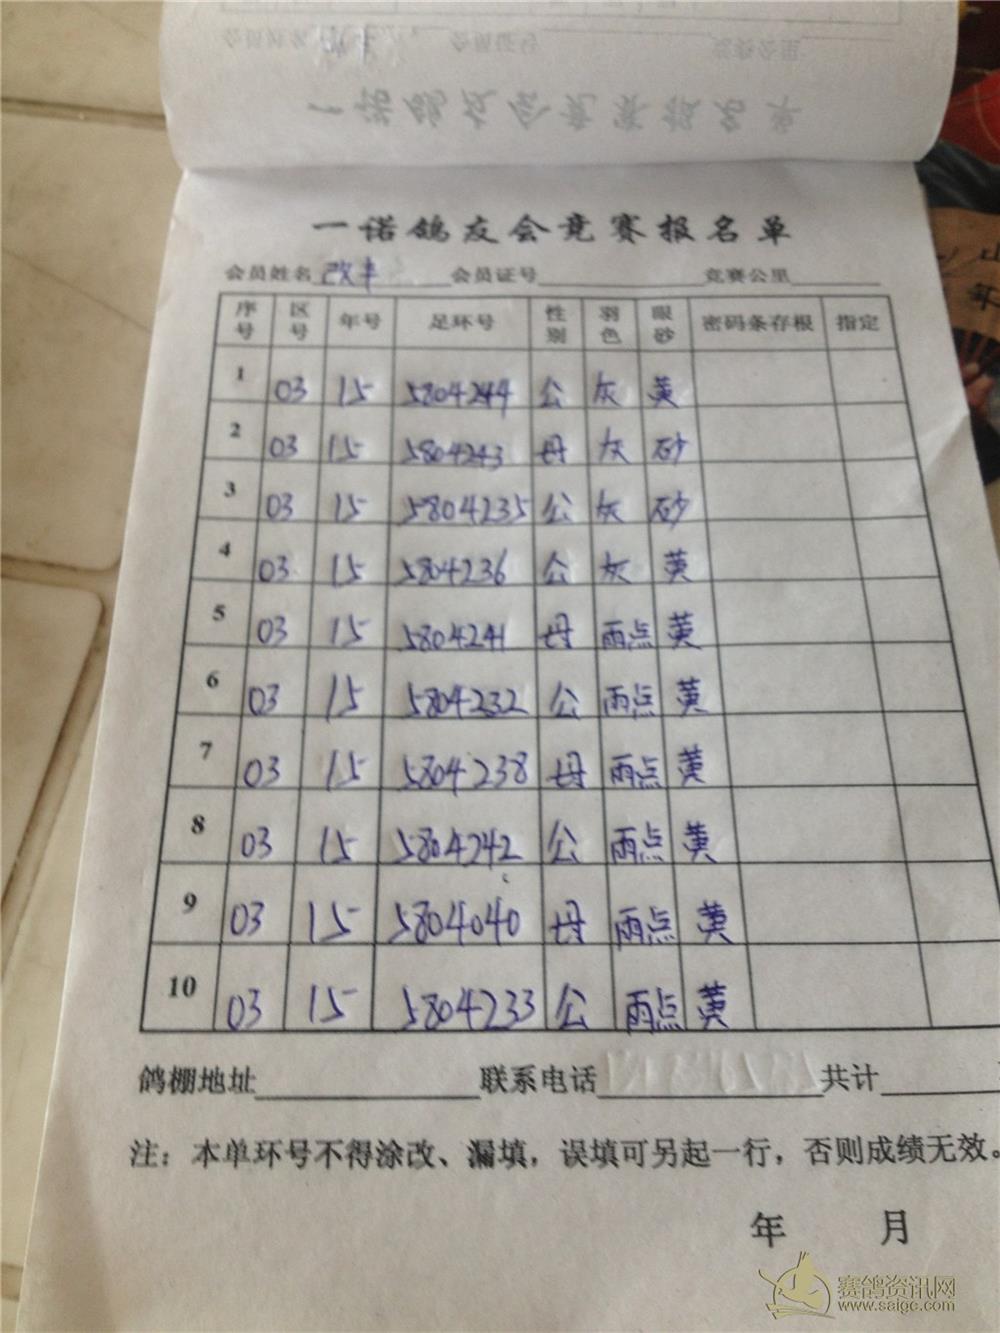 一诺鸽友会竞赛报名单
会员姓名 改丰 会员证号 竞赛公里
序号 区号 年号 足环号 性别 羽色 眼砂 密码条存根 指定
1 03 15 5804244 公 灰 黄
2 03 15 5804243 母 灰 砂
3 03 15 5804235 公 灰 砂
4 03 15 5804236 公 灰 黄
5 03 15 5804241 母 雨点 黄
6 03 15 5804232 公 雨点 黄
7 03 15 5804238 母 雨点 黄
8 03 15 5804242 公 雨点 黄
9 03 15 5804040 母 雨点 黄
10 03 15 5804233 公 雨点 黄
鸽棚地址 联系电话 共计
注：本单环号不得涂改、漏填，误填可另起一行，否则成绩无效。
年 月
赛鸽资讯网
www.saige.com